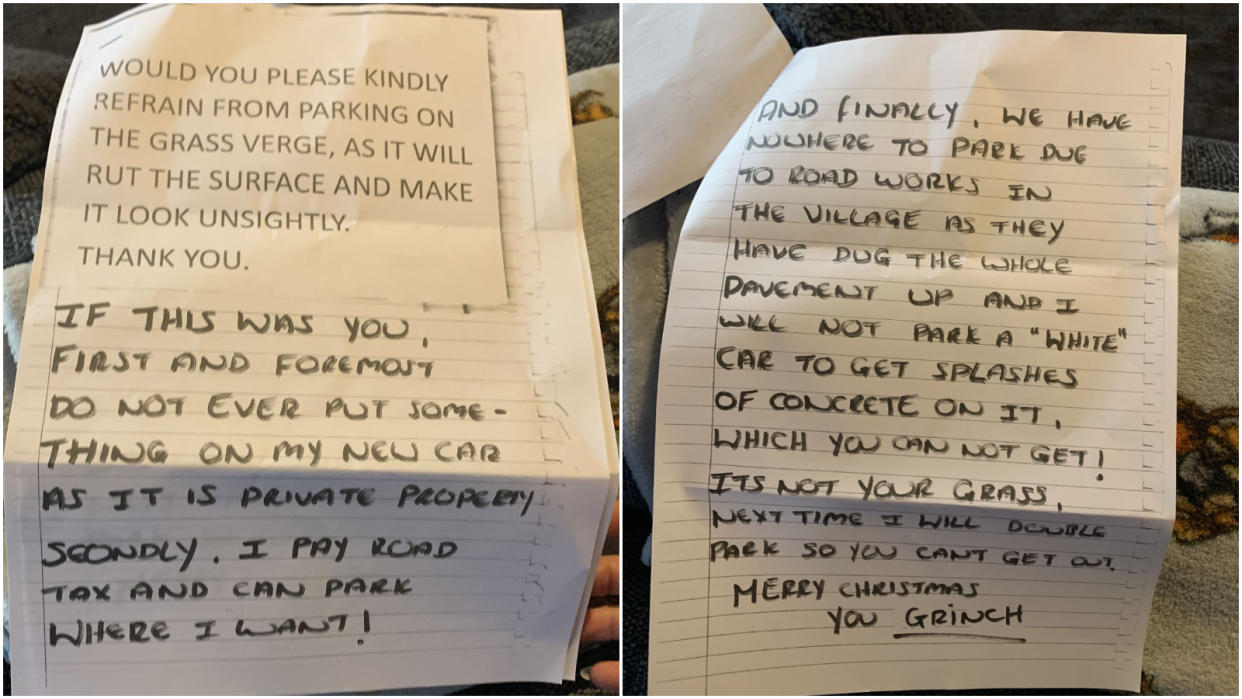 WOULD YOU PLEASE KINDLY
REFRAIN FROM PARKING ON
THE GRASS VERGE, AS IT WILL
RUT THE SURFACE AND MAKE
IT LOOK UNSIGHTLY.
THANK YOU.
IF THIS WAS YOU,
FIRST AND FOREMOST
DO NOT EVER PUT SOME-
THING ON MY NEW CAR
AS IT IS PRIVATE PROPERTY
SCONDLY. I PAY ROAD
TAX AND CAN PARK
WHERE I WANT!
AND FINALLY, WE HAVE
NOWHERE TO PARK DUE
TO ROAD WORKS IN
THE VILLAGE AS THEY
HAVE DUG THE WHOLE
PAVEMENT UP AND I
WILL NOT PARK A "WHITE"
CAR TO GET SPLASHES
OF CONCRETE ON IT,
WHICH YOU CAN NOT GET!
ITS NOT YOUR GRASS,
NEXT TIME I WILL DOUBLE
PARK SO YOU CANT GET OUT.
MERRY CHRISTMAS
YOU GRINCH